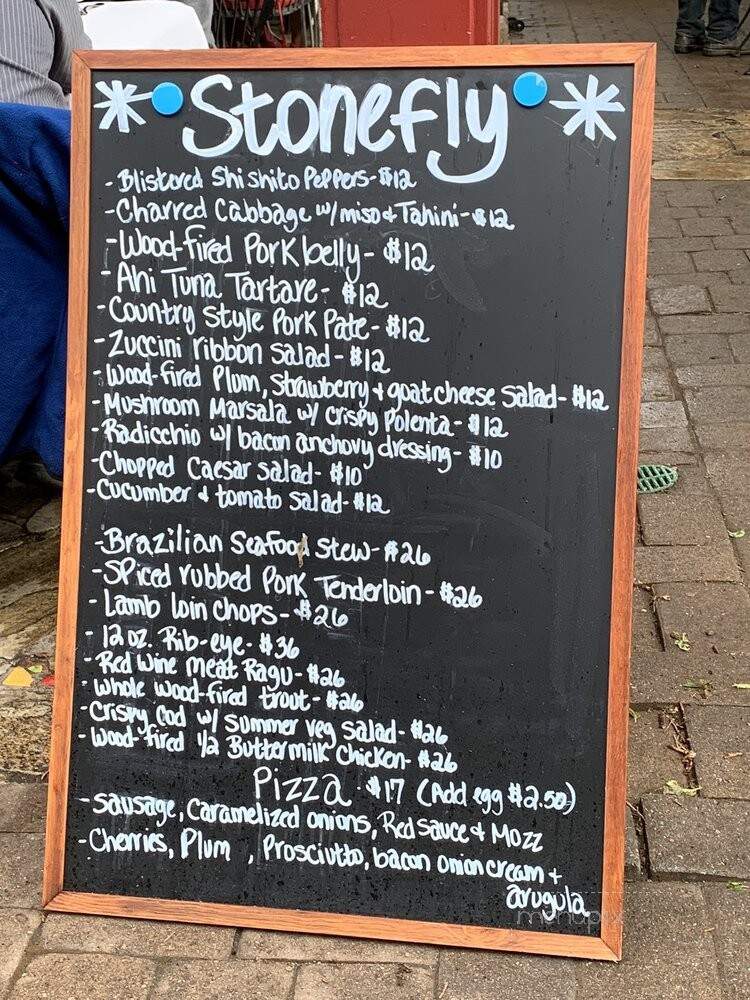 Stonefly
- Blistered Shishito Peppers - $12
- Charred Cabbage w/ miso & Tahini - $12
- Wood-fired Pork belly - $12
- Ahi Tuna Tartare - $12
- Country Style Pork Pate - $12
- Zuccini ribbon salad - $12
- Wood-fired Plum, strawberry + goat cheese salad - $12
- Mushroom Marsala w/ crispy Polenta - $12
- Radicchio w/ bacon anchovy dressing - $10
- Chopped Caesar salad - $10
- Cucumber & tomato salad - $12
- Brazilian Seafood Stew - $26
- Spiced rubbed Pork Tenderloin - $26
- Lamb loin chops - $26
- 12 oz. Rib-eye - $36
- Red wine meat Ragu - $26
- whole wood-fired trout - $26
- Crispy Cod w/ summer veg salad - $26
- Wood-fired 1/2 Buttermilk Chicken - $26
Pizza - $17 (Add egg $2.50)
- Sausage, Caramelized onions, Red sauce & Mozz
- Cherries, Plum , Prosciutto, bacon onion cream +
arugula
menupix